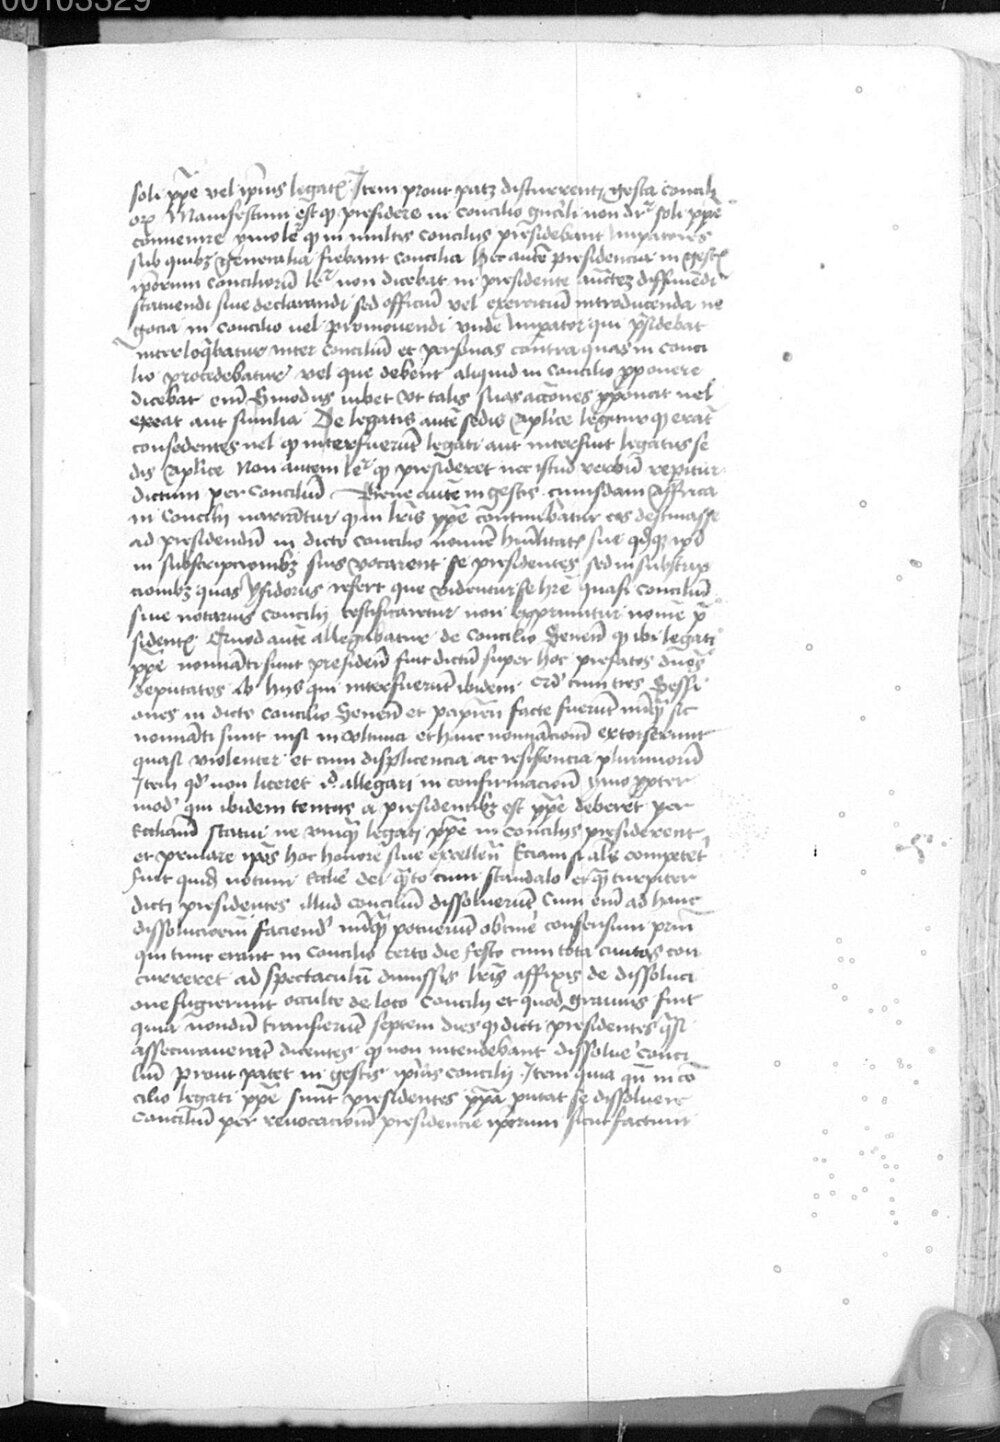 00103329
soli ppē vel ipīus legatꝭ Item prout patꝫ discurrenti gesta concilj
oꝝ Manifestum est ꝙ presidere in concilio gn̄rali non dr̄ soli ppē
conuenire ymo lr̄ ꝙ in multis concilijs presidebant Imperatores
sub quibꝫ generalia fiebant concilia hec autē presidencia in gestꝭ
ip̄orum concilioru͞ lr̄ non dicebat in presidente auctꝫ diffiniendi
statuendi siue declarandi sed officiū vel exerciciū introducenda ne
gocia in concilio vel promouendi vnde Imperator qui p̄sidebat
interloq̄batur inter conciliū et personas contra quas in conci
lio procedebatur vel que debent aliquid in concilio ꝓponere
dicebat enī Sinodus iubet vt talis suas acciones ꝓponat uel
exeat aut similia De legatis autē sedis aplice legitur ꝙ erāt
consedentes uel ꝙ interfuerūt legati aut interfuit legatus se
dis aplice Non autem lr̄ ꝙ presideret nec istud verbū repitur
dictum per conciliū Bene autē in gestis cuiusdam affrica
ni concilij narrātur ꝙ in lr̄is ppē continebātur eos destinasse
ad presidendū in dicto concilio nomē humilitatꝭ sue
in subscripcionibꝫ suis vocarent se presidentes sed in subscrip
cionibꝫ quas ysidorus refert que videntur se hr̄e quasi conciliū
siue notarius concilij testificaretur non exprimitur nomē p̄
sidentꝭ Quod autē allegabatur de concilio Senen̄ ꝙ ibi legati
ppē nominati sunt presiden̄ fuit dictū super hoc prefatos dn̄os
deputatos ab hijs qui interfuerūt ibidem cum tres Sessi
ones in dicto concilio Senen̄ et papien̄ facte fuerūt nūq̄ sic
nominati sunt nisi in vltima et hanc nominacionē extorserunt
quasi violenter et cum displicencia ac resistencia plurimorū
Item qd̄ non liceret allegari in confirmacionē ymo ꝓpter
mod̄ qui ibidem tentus a presidentibꝫ est ppē deberet per
Ecclīam statui ne vnq̄ legati ppē in concilijs presiderent
et priuare ip̄os hoc honore siue excellen̄ Eciam si als competēt
fuit quid notum Ecclīe dei q̄to cum scandalo et q̄ turpiter
dicti presidentes illud conciliū dissoluerūt Cum enī ad hanc
dissolucionē faciend̄ nūq̄ potuerūt obtinē consensum prin̄
qui tunc erant in concilio certo die festo cum tota ciuitas con
curreret ad spectaculū dimissis lr̄is affixis de dissoluci
one fugierunt occulte de loco concilij et quod grauius fuit
quia nondū transierūt septem dies ꝙ dicti presidentes
assecurauerāt dicentes ꝙ non intendebant dissoluē conci
liū prout patet in gestis ipīus concilij Item quia qn̄ in cō
cilio legati ppē sunt presidentes ppā putat se dissoluere
conciliū per reuocacionē presidencie ip̄orum sicut faciunt